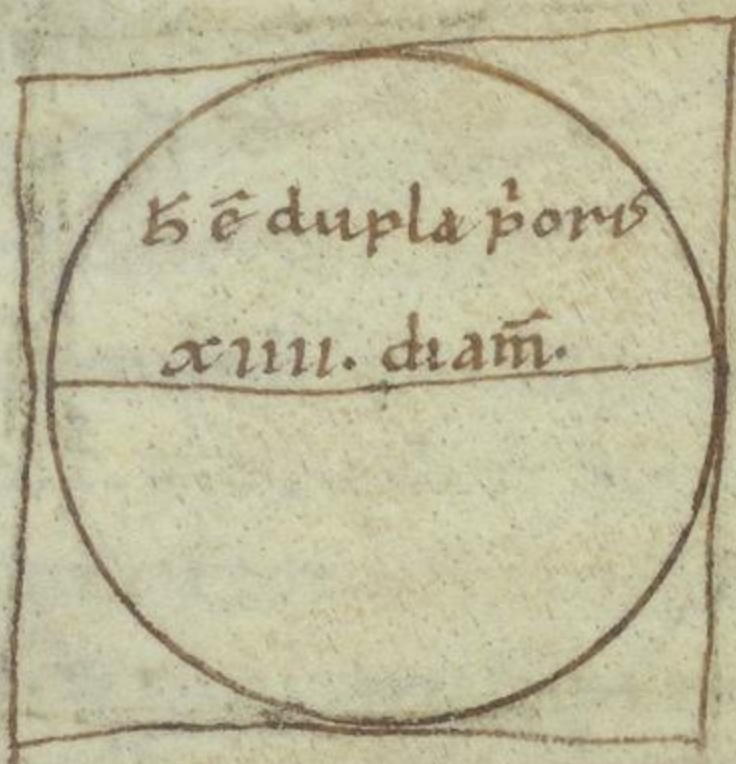 ħ ē dupla p̍oris
xiiii. diam̄.